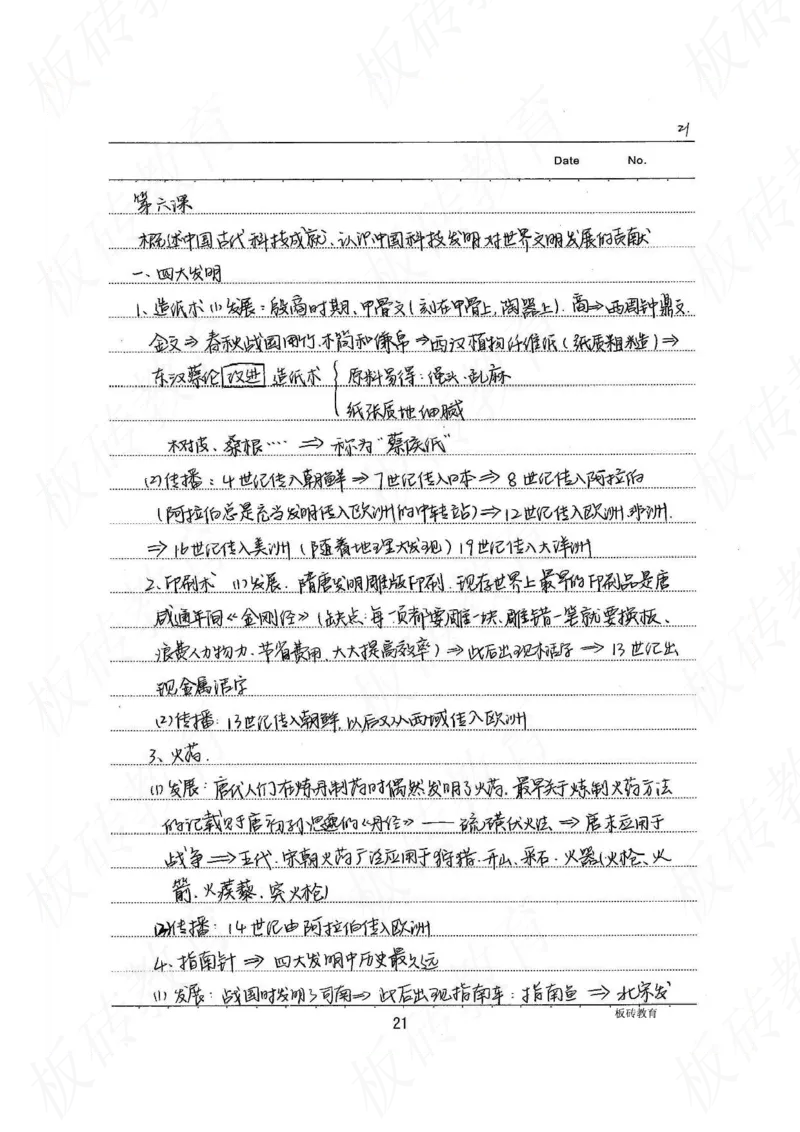 21
Date No.
第六课
概述中国古代科技成就、认识中国科技发明对世界文明发展的贡献
一、四大发明
1、造纸术 (1)发展：殷商时期、甲骨文(刻在甲骨上,陶器上). 商⇒西周钟鼎文.
金文⇒春秋战国用竹、木简和缣帛⇒西汉植物纤维纸(纸质粗糙)⇒
东汉蔡伦改进造纸术 { 原料易得：绳头、乱麻
纸张质地细腻
树皮、桑根…… ⇒ 称为"蔡侯纸"
(2)传播：4世纪传入朝鲜⇒7世纪传入日本⇒8世纪传入阿拉伯
(阿拉伯总是充当发明传入欧洲的中转站)⇒12世纪传入欧洲.非洲.
⇒16世纪传入美洲(随着地理大发现)19世纪传入大洋洲
2、印刷术 (1)发展. 隋唐发明雕版印刷. 现存世界上最早的印刷品是唐
咸通年间《金刚经》(缺点:每一页都要雕一块、雕错一笔就要换板、
浪费人力物力.节省费用.大大提高效率)⇒此后出现木活字⇒13世纪出
现金属活字
(2)传播：13世纪传入朝鲜,以后又从西域传入欧洲
3、火药.
(1)发展：唐代人们在炼丹制药时偶然发明了火药. 最早关于炼制火药方法
的记载见于唐初孙思邈的《丹经》——硫磺伏火法⇒唐末应用于
战争⇒五代.宋朝火药广泛应用于狩猎.开山、采石、火器(火枪、火
箭、火蒺藜、突火枪)
(2)传播：14世纪由阿拉伯传入欧洲
4、指南针⇒四大发明中历史最久远
(1)发展：战国时发明了司南⇒此后出现指南车：指南鱼⇒北宋发
板砖教育
21